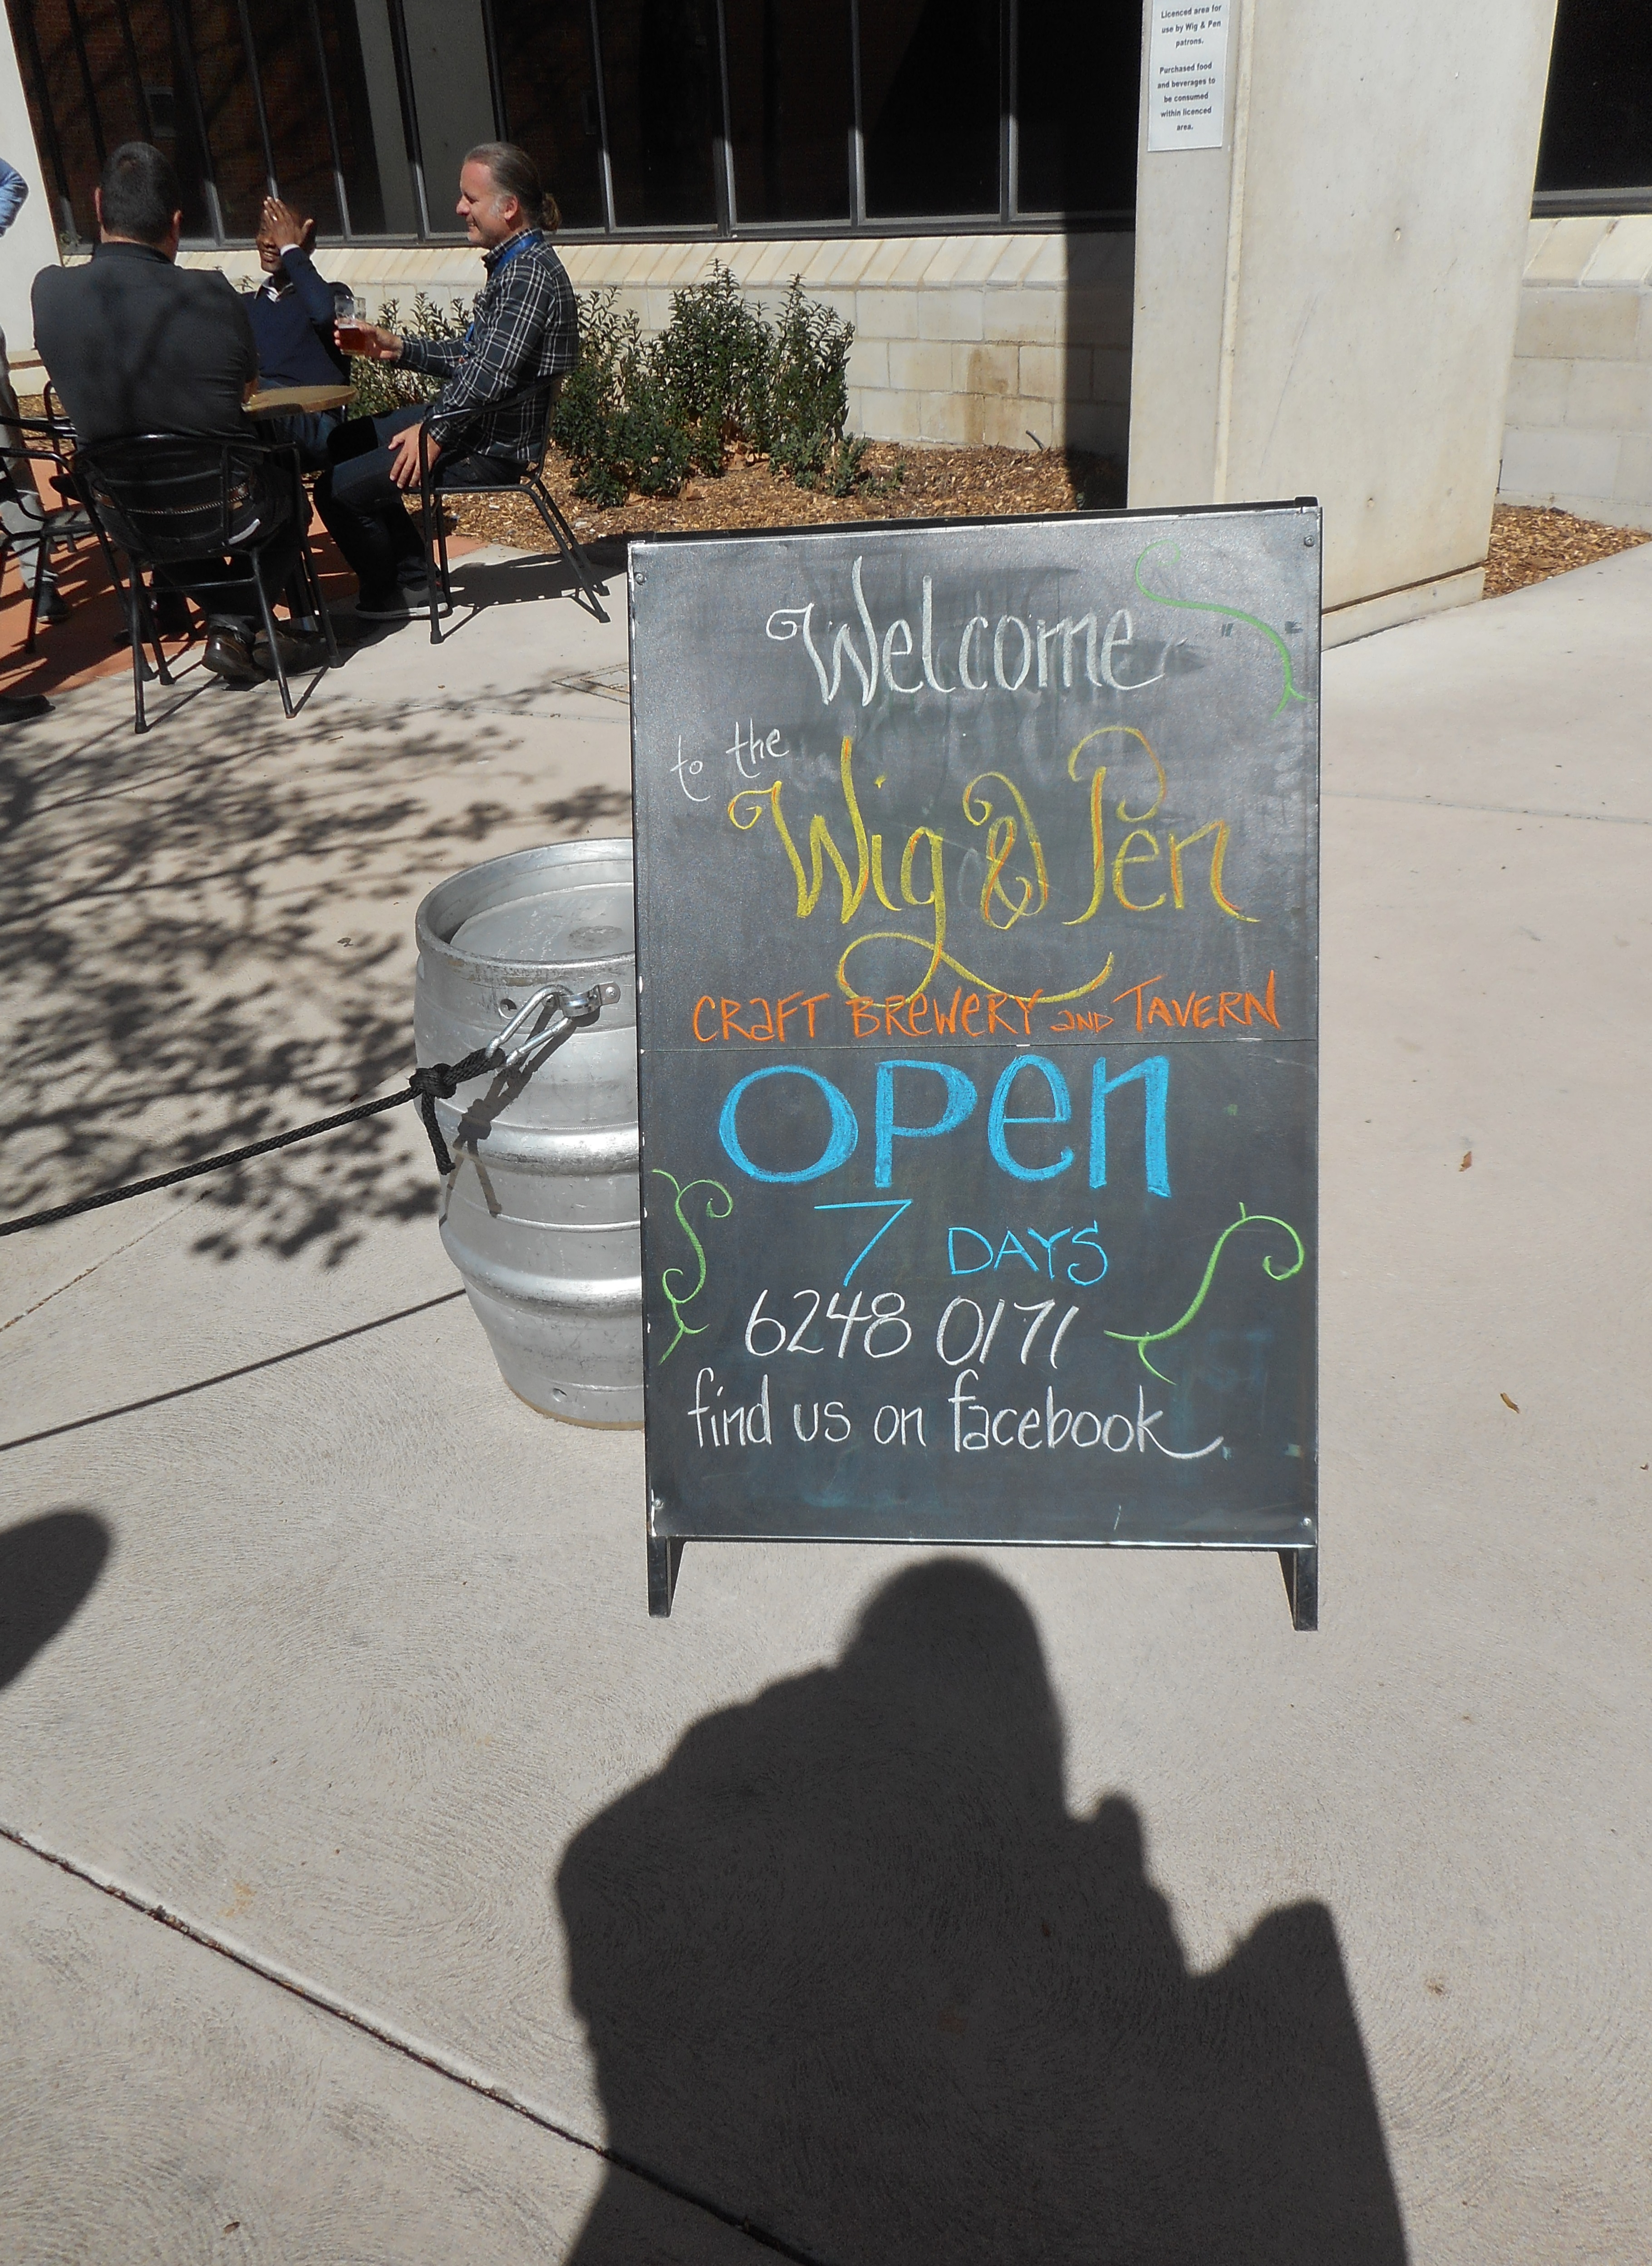 Licenced area for
use by Wig & Pen
patrons.
Purchased food
and beverages to
be consumed
within licenced
area.
Welcome
to the
Wig & Pen
CRAFT BREWERY AND TAVERN
OPEN
7 DAYS
6248 0171
find us on facebook